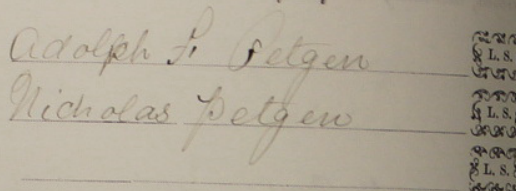 Adolph F. Petgen L. S.
Nicholas Petgen L. S.
L. S.